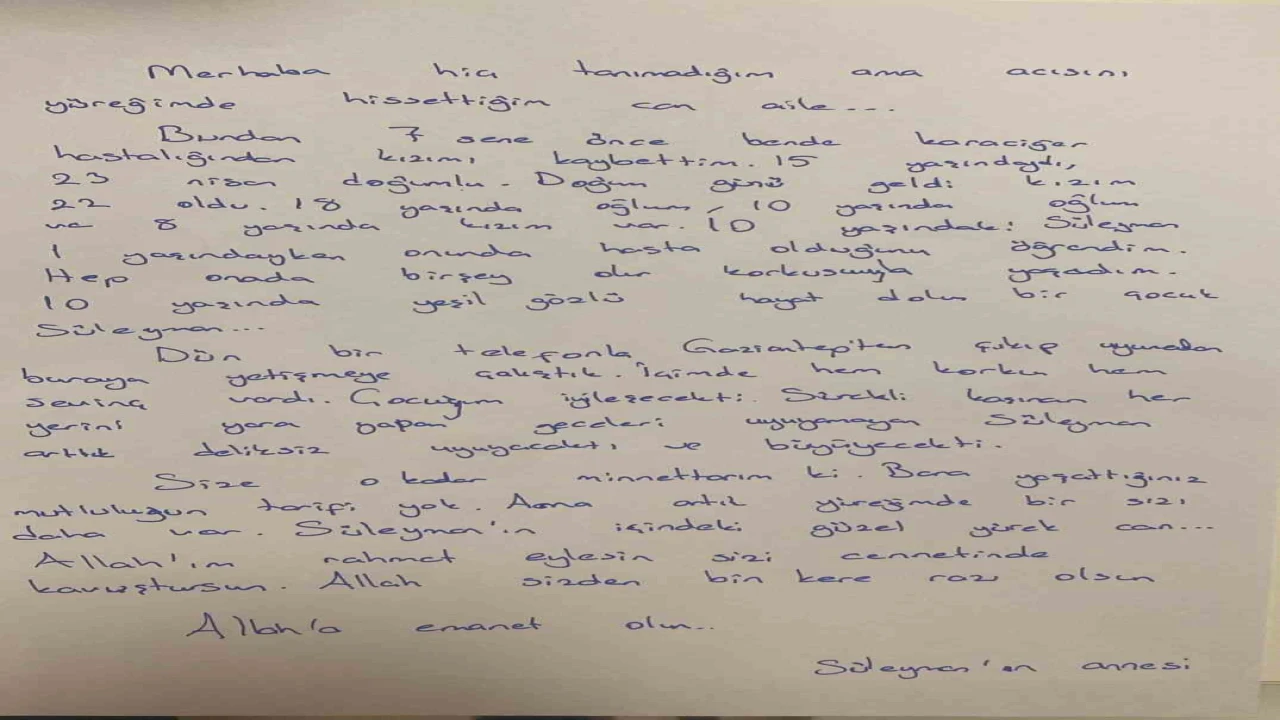 Merhaba hiç tanımadığım ama acısını
yüreğimde hissettiğim can aile...
Bundan 7 sene önce bende karaciğer
hastalığından kızımı kaybettim. 15 yaşındaydı,
23 nisan doğumlu. Doğum günü geldi kızım
22 oldu. 18 yaşında oğlum, 10 yaşında oğlum
ve 8 yaşında kızım var. 10 yaşındaki Süleyman
1 yaşındayken onunda hasta olduğunu öğrendim.
Hep onada birşey olur korkusuyla yaşadım.
10 yaşında yeşil gözlü hayat dolu bir çocuk
Süleyman...
Dün bir telefonla Gaziantep'ten çıkıp uçmadan
buraya yetişmeye çalıştık. İçimde hem korku hem
sevinç vardı. Çocuğum iyileşecekti. Sürekli kaşınan her
yerini yara yapan geceleri uyuyamayan Süleyman
artık deliksiz uyuyacaktı ve büyüyecekti.
Size o kadar minnettarım ki. Bana yaşattığınız
mutluluğun tarifi yok. Ama artık yüreğimde bir sızı
daha var. Süleyman'ın içindeki güzel yürek can...
Allah'ım rahmet eylesin sizi cennetinde
kavuştursun. Allah sizden bin kere razı olsun
Allah'a emanet olun..
Süleyman'ın annesi